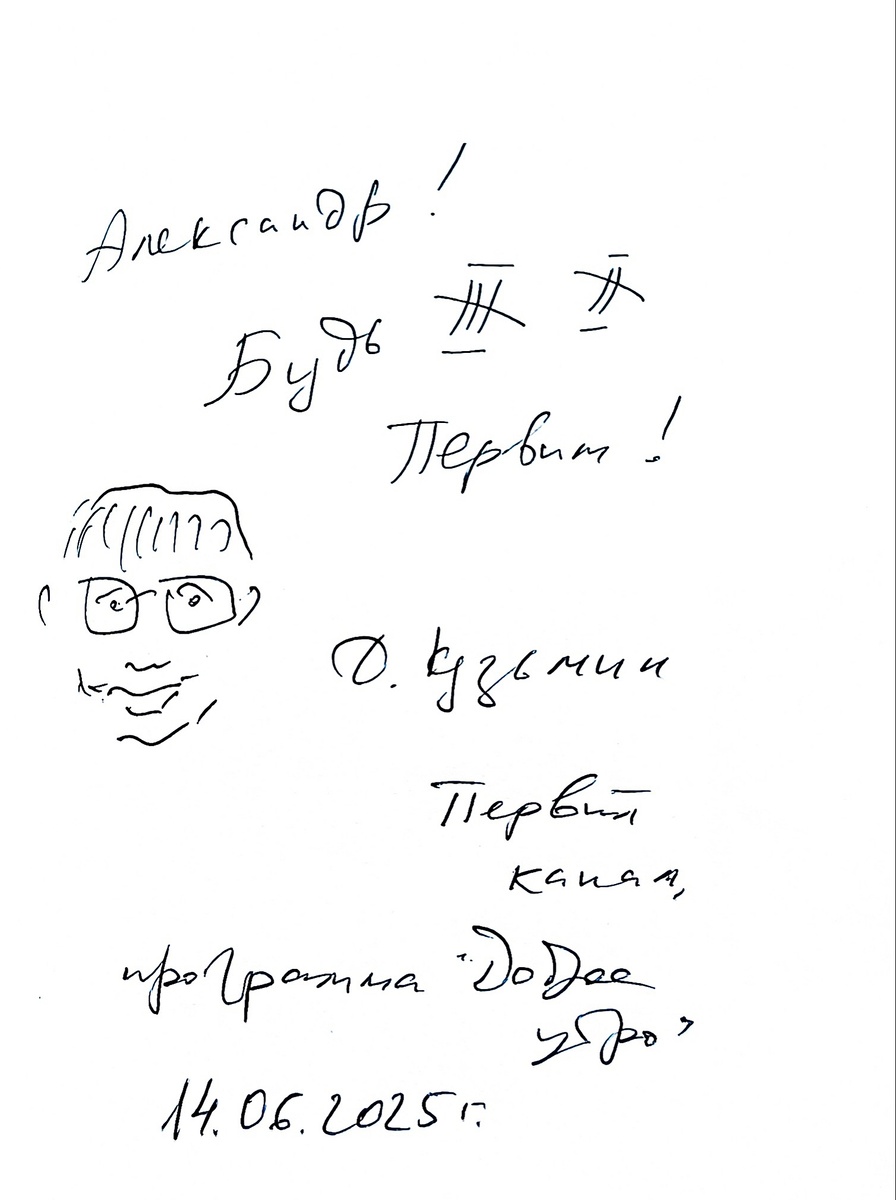 Александр!
Будь III II
Первым!
Д. Кузьмин
Первый
канал,
программа "Доброе
утро"
14.06.2025 г.